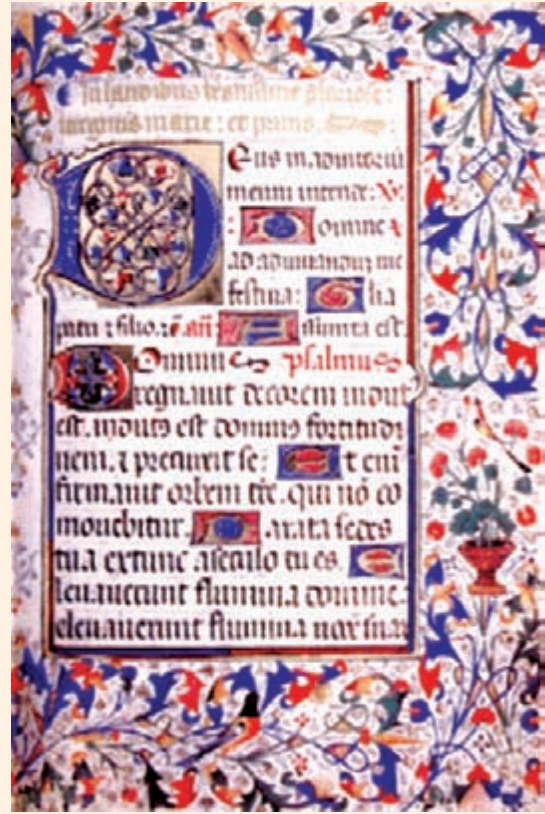 In laudibus beatissime gloriose:
virginis marie: et primo
Deus in adiutoriũ
meum intende: ℟:
: Domine
ad adiuvandum me
festina: Glia
patri ⁊ filio. añ: Assumta est
Dominus psalmus
regnauit decorem indut
est. indutꝰ est dominus fortitudi
nem. ⁊ precinxit se: Et eni
firmauit orbem tre. qui nõ co
mouebitur. Parata sedes
tua extunc aseculo tu es. E
leuauerunt flumina domine.
eleuauerunt flumina